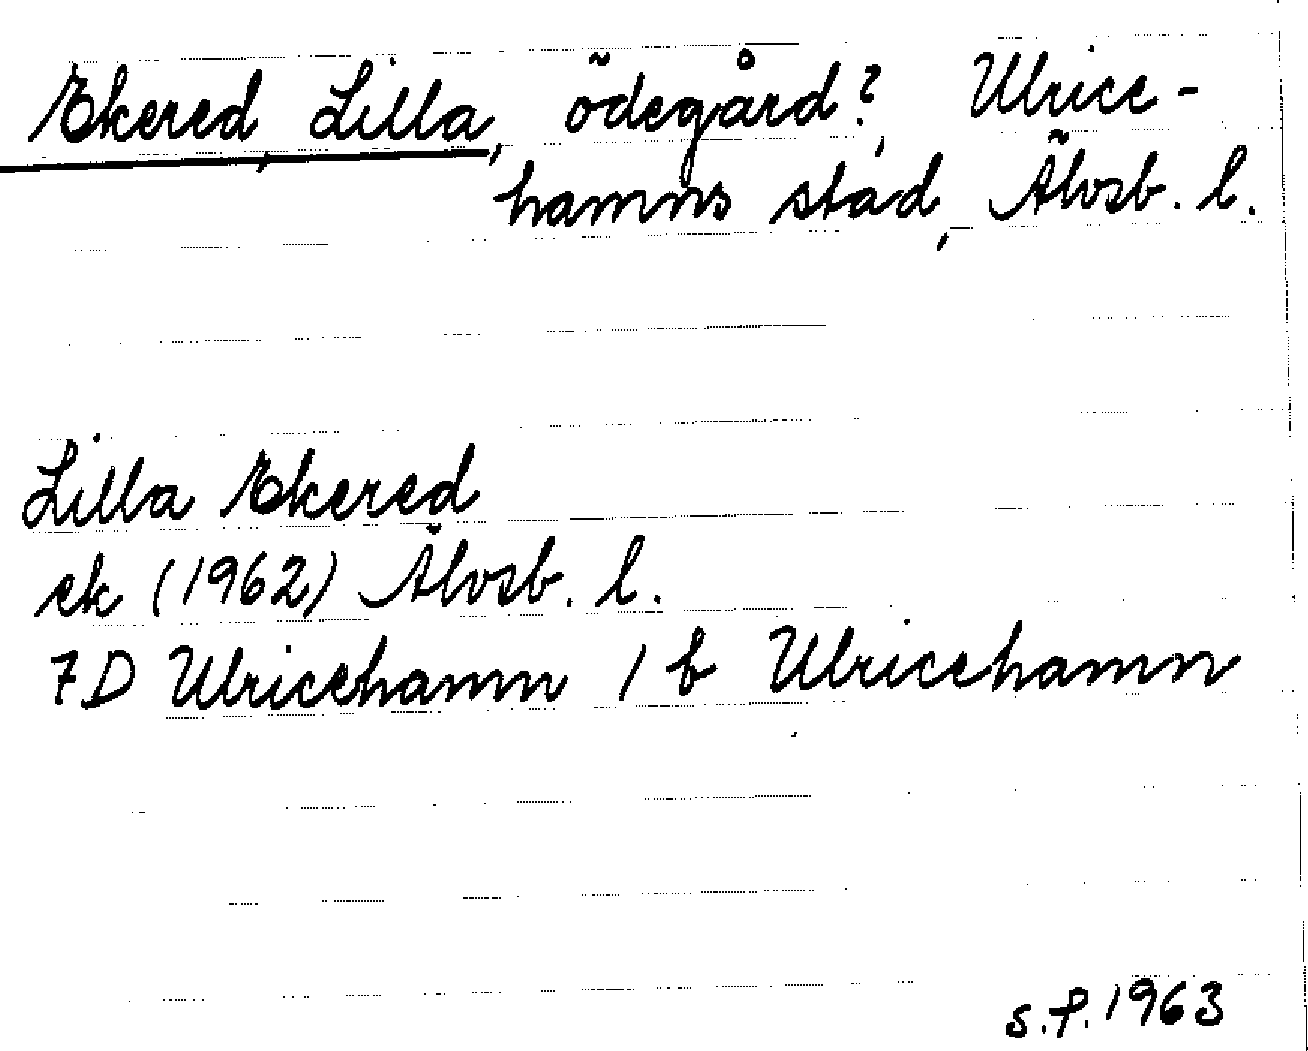 Ekered, Lilla, ödegård?, Ulrice-
hamns stad, Älvsb. l.
Lilla Ekered
ek (1962) Älvsb. l.
7D Ulricehamn 1 b Ulricehamn
s.f. 1963